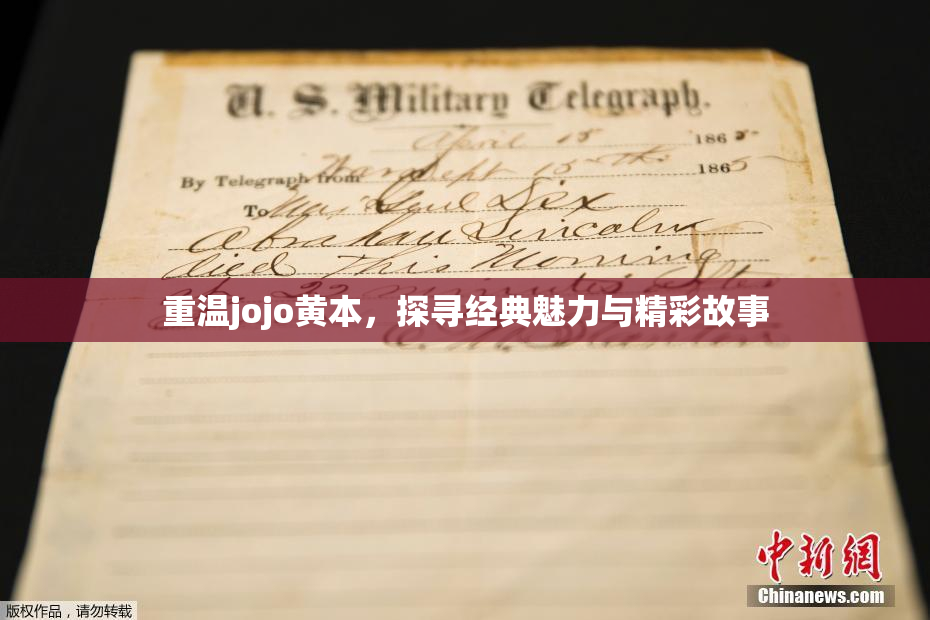 U. S. Military Telegraph.
April 15 1865
By Telegraph from War Dept 15th 1865
To Maj Genl Dix
Abraham Lincoln
died This Morning
at 22 minutes after
重温jojo黄本，探寻经典魅力与精彩故事
E. M. Stanton
中新网
Chinanews.com
版权作品，请勿转载